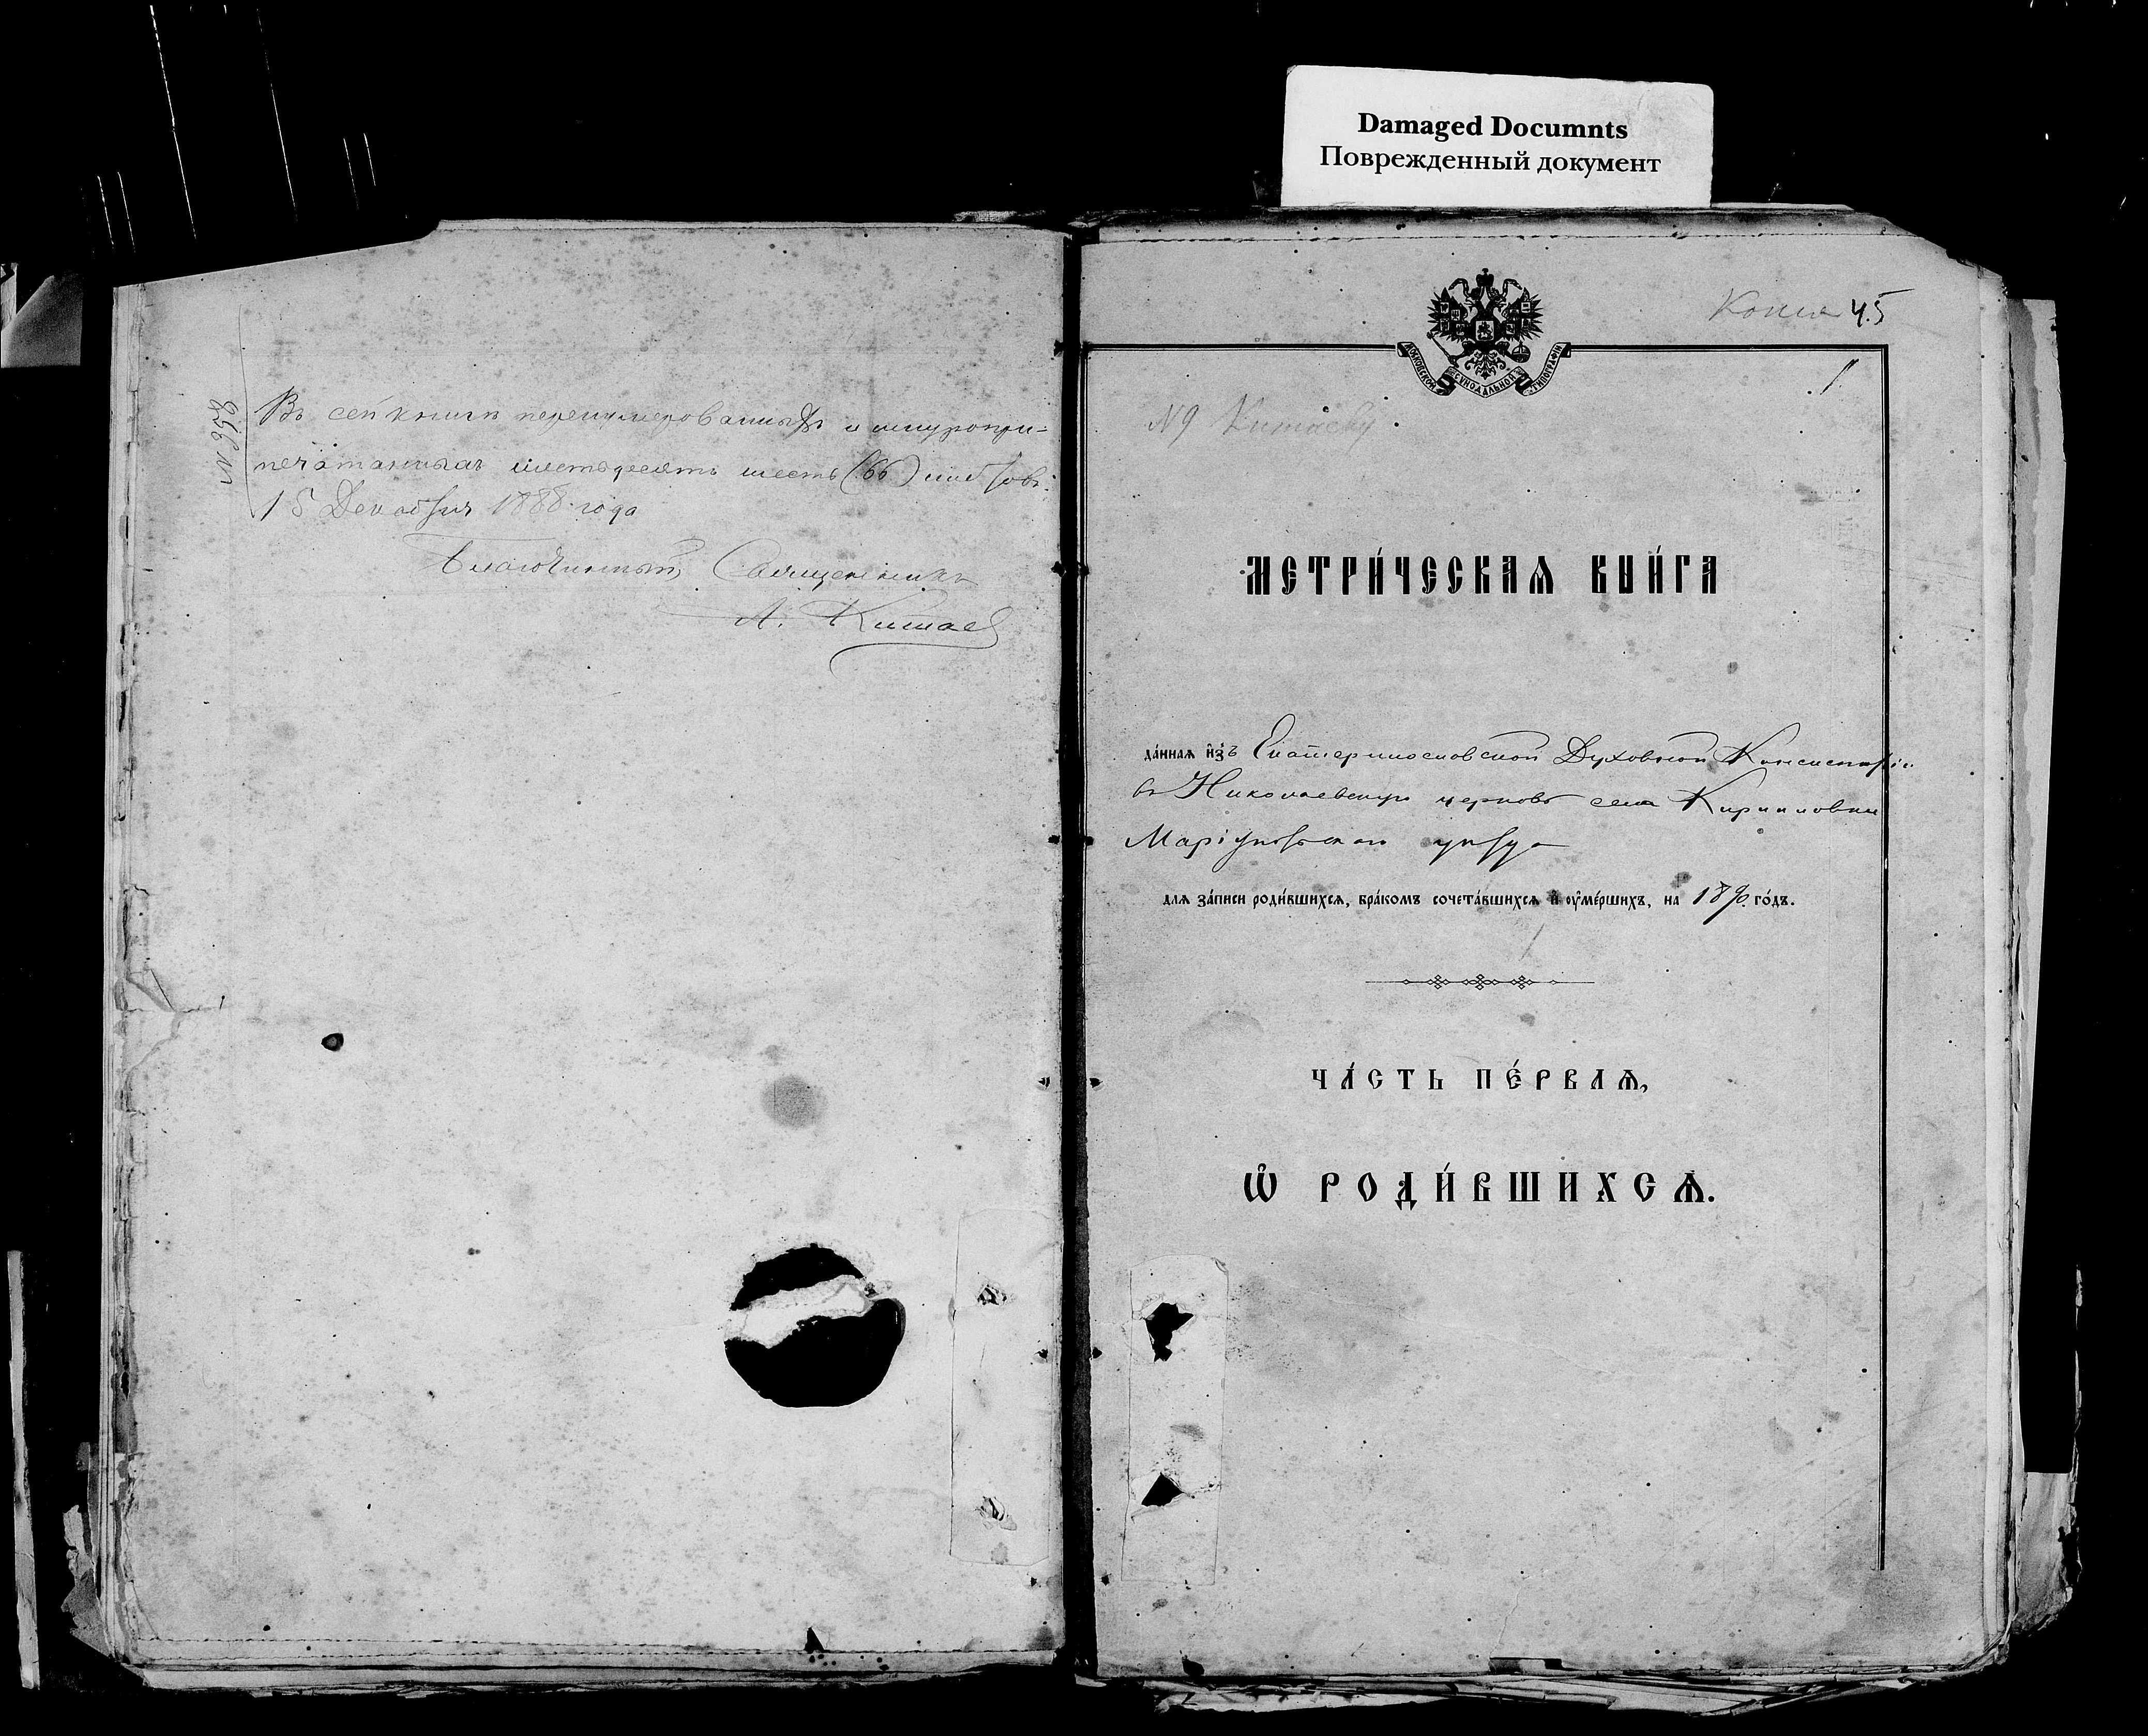 Damaged Documnts
Поврежденный документ
№ 958
Въ сей книгѣ перенумерованныхъ и шнуропри=
печатанныхъ шестьдесятъ шесть (66) листовъ.
15 Декабря 1888 года
Благочинный, Священникъ
А. Китаев
Копия 45
МОСКОВСКОЙ СѴНОДАЛЬНОЙ ТИПОГРАФІИ
1
№9 Китаеву
МЕТРИ́ЧЕСКАѦ КНИ́ГА
да́ннаѧ и҆зъ Екатеринославской Духовной Консисторіи
въ Николаевскую церковь села Кирилловки
Маріупольскаго уѣзда
для за́писи роди́вшихсѧ, бра́комъ сочета́вшихсѧ и҆ ѹ҆ме́ршихъ, на 1890 го́дъ.
ЧА́СТЬ ПЕ́РВАѦ,
Ѡ҆ РОДИ́ВШИХСѦ.